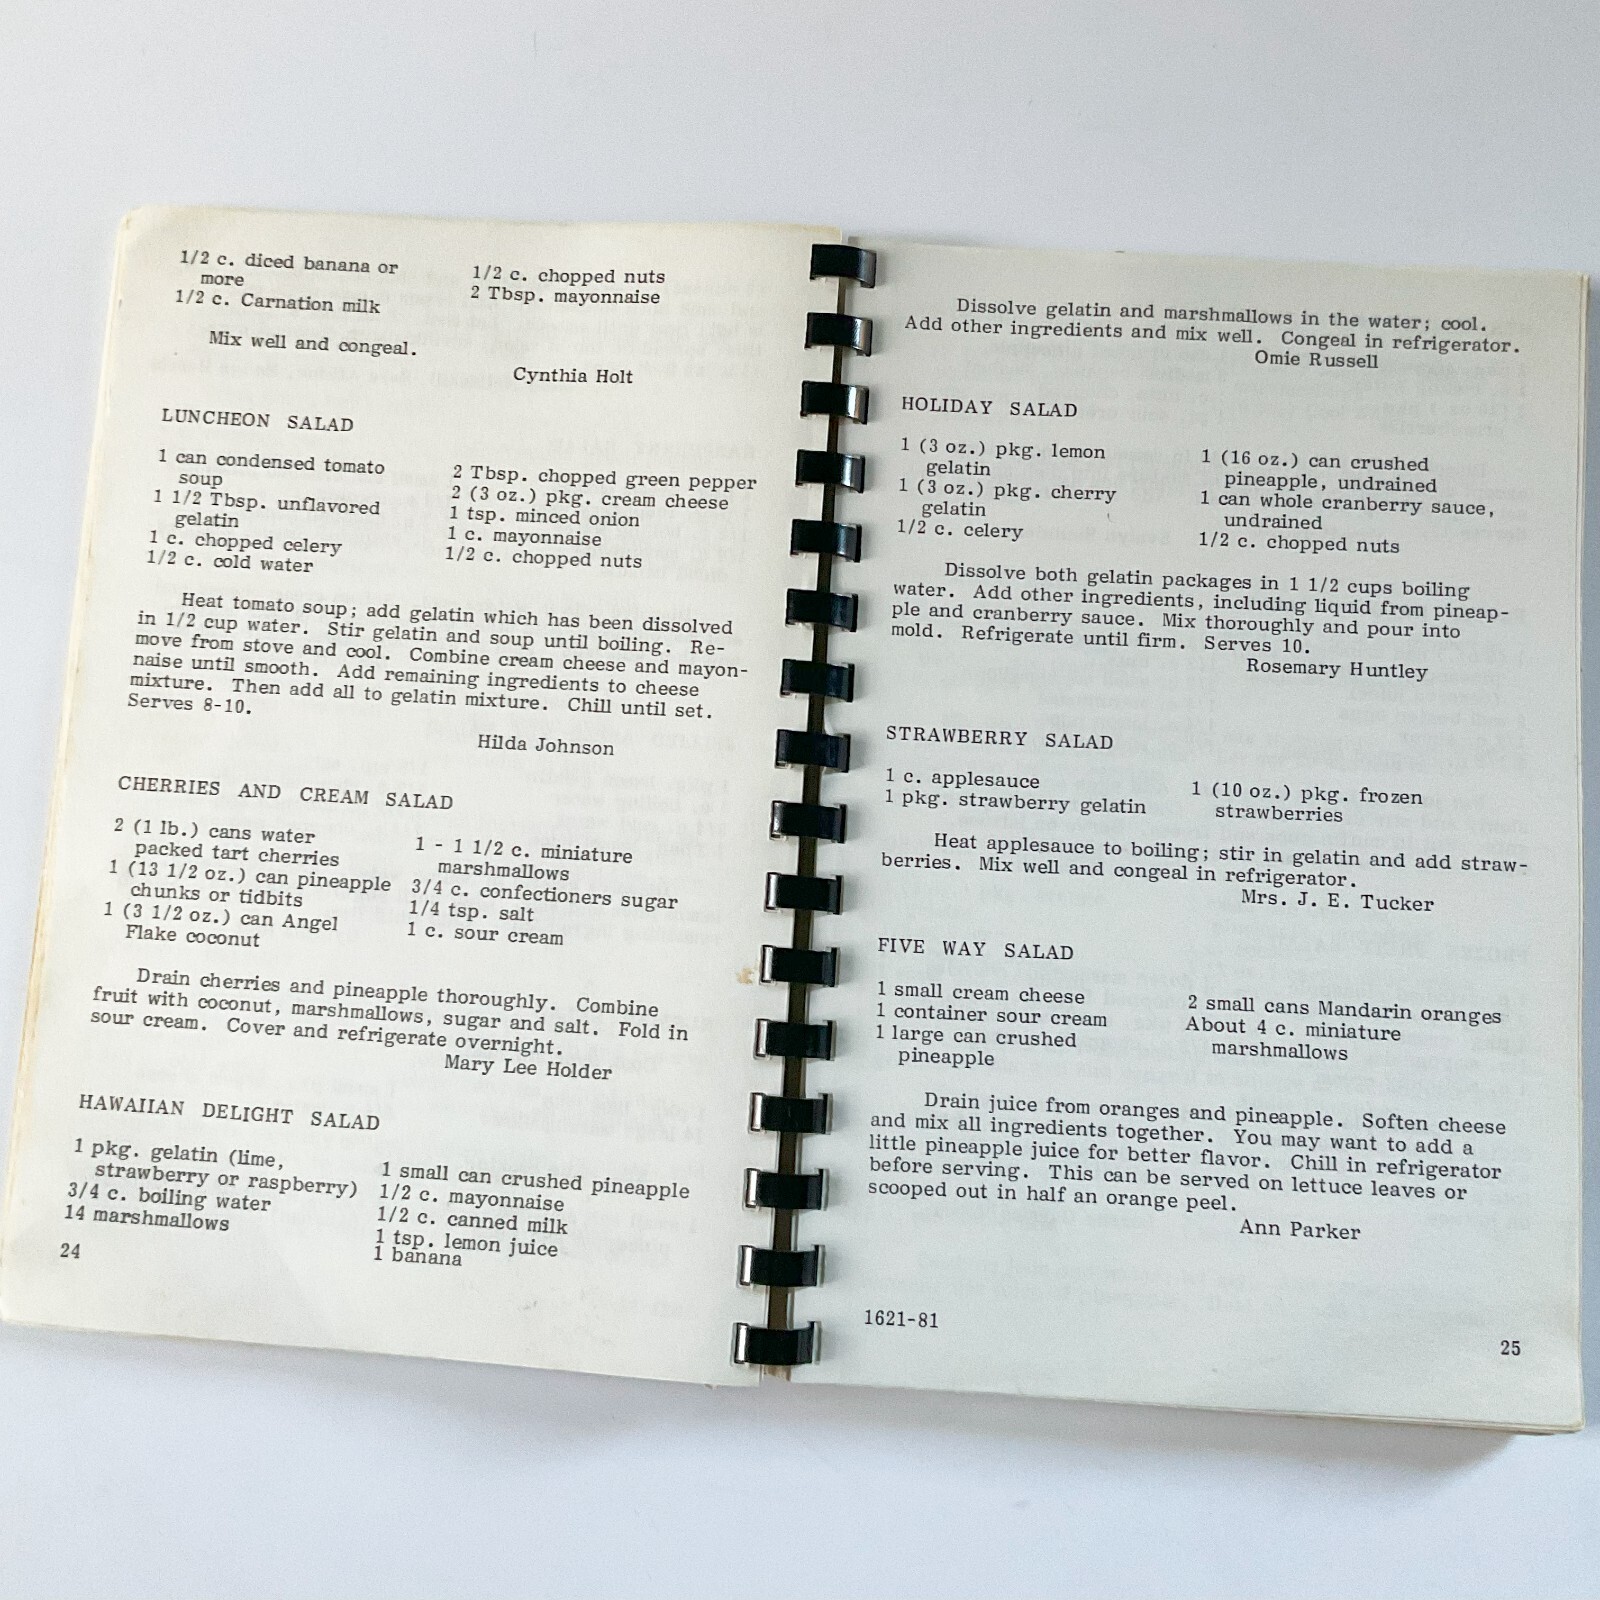 1/2 c. diced banana or
more
1/2 c. Carnation milk
1/2 c. chopped nuts
2 Tbsp. mayonnaise
Mix well and congeal.
Cynthia Holt
LUNCHEON SALAD
1 can condensed tomato
soup
1 1/2 Tbsp. unflavored
gelatin
1 c. chopped celery
1/2 c. cold water
2 Tbsp. chopped green pepper
2 (3 oz.) pkg. cream cheese
1 tsp. minced onion
1 c. mayonnaise
1/2 c. chopped nuts
Heat tomato soup; add gelatin which has been dissolved
in 1/2 cup water. Stir gelatin and soup until boiling. Re-
move from stove and cool. Combine cream cheese and mayon-
naise until smooth. Add remaining ingredients to cheese
mixture. Then add all to gelatin mixture. Chill until set.
Serves 8-10.
Hilda Johnson
CHERRIES AND CREAM SALAD
2 (1 lb.) cans water
packed tart cherries
1 (13 1/2 oz.) can pineapple
chunks or tidbits
1 (3 1/2 oz.) can Angel
Flake coconut
1 - 1 1/2 c. miniature
marshmallows
3/4 c. confectioners sugar
1/4 tsp. salt
1 c. sour cream
Drain cherries and pineapple thoroughly. Combine
fruit with coconut, marshmallows, sugar and salt. Fold in
sour cream. Cover and refrigerate overnight.
Mary Lee Holder
HAWAIIAN DELIGHT SALAD
1 pkg. gelatin (lime,
strawberry or raspberry)
3/4 c. boiling water
14 marshmallows
1 small can crushed pineapple
1/2 c. mayonnaise
1/2 c. canned milk
1 tsp. lemon juice
1 banana
24
Dissolve gelatin and marshmallows in the water; cool.
Add other ingredients and mix well. Congeal in refrigerator.
Omie Russell
HOLIDAY SALAD
1 (3 oz.) pkg. lemon
gelatin
1 (3 oz.) pkg. cherry
gelatin
1/2 c. celery
1 (16 oz.) can crushed
pineapple, undrained
1 can whole cranberry sauce,
undrained
1/2 c. chopped nuts
Dissolve both gelatin packages in 1 1/2 cups boiling
water. Add other ingredients, including liquid from pineap-
ple and cranberry sauce. Mix thoroughly and pour into
mold. Refrigerate until firm. Serves 10.
Rosemary Huntley
STRAWBERRY SALAD
1 c. applesauce
1 pkg. strawberry gelatin
1 (10 oz.) pkg. frozen
strawberries
Heat applesauce to boiling; stir in gelatin and add straw-
berries. Mix well and congeal in refrigerator.
Mrs. J. E. Tucker
FIVE WAY SALAD
1 small cream cheese
1 container sour cream
1 large can crushed
pineapple
2 small cans Mandarin oranges
About 4 c. miniature
marshmallows
Drain juice from oranges and pineapple. Soften cheese
and mix all ingredients together. You may want to add a
little pineapple juice for better flavor. Chill in refrigerator
before serving. This can be served on lettuce leaves or
scooped out in half an orange peel.
Ann Parker
1621-81
25